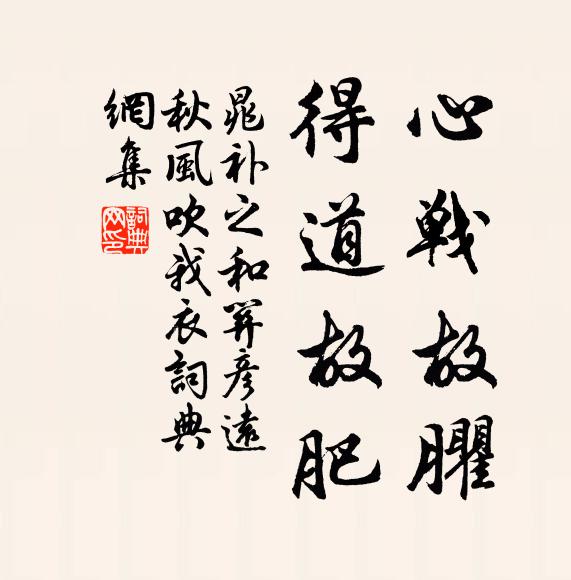 心戰故臞
得道故肥
晁補之和關彥遠
秋風吹我衣詞典
網集
詞典網印